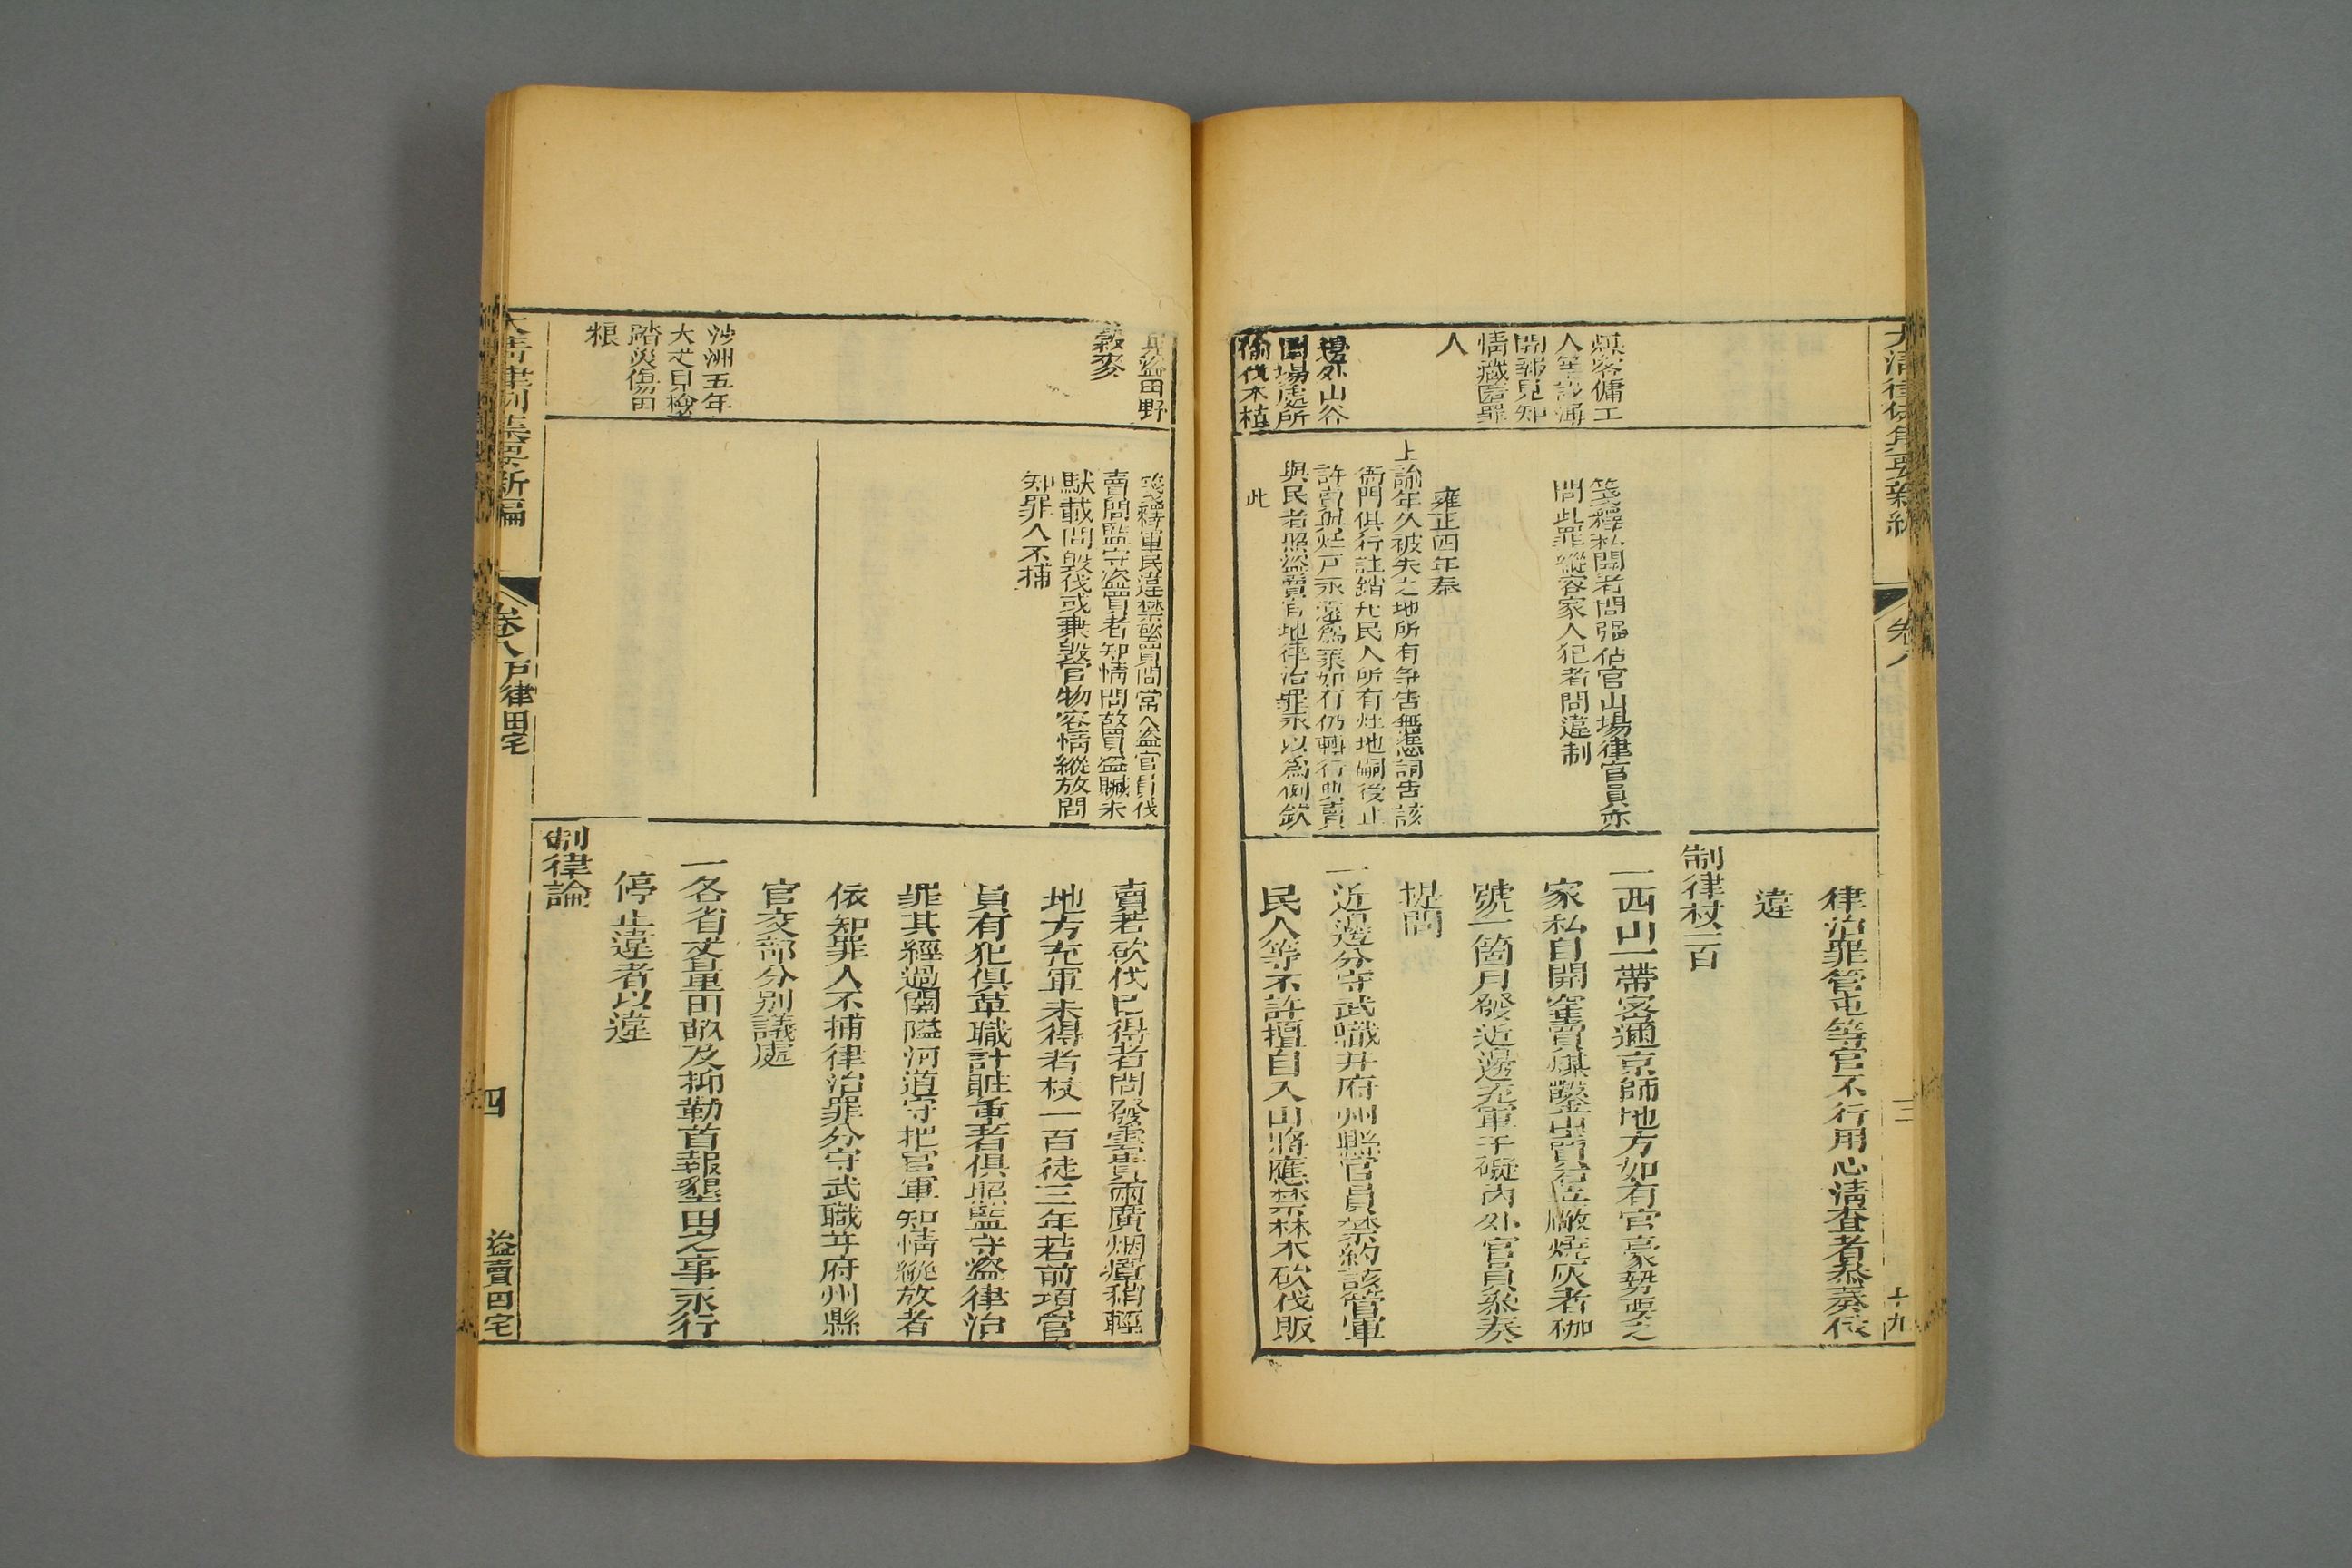 大清律例集要新編
卷八
三
十九
煤窑傭工
人等設海
開部見知
情藏匿罪
人
邊外山谷
圍場處所
偷伐木植
箋釋私開者問强佔官山場律官員亦
問此罪縱容家人犯者問違制
雍正四年奏
上諭年久被失之地所有爭告無憑詞告該
衙門俱行註銷凡民人所有灶地嗣後止
許賣與灶戶永遠為業如有仍轉行典賣
與民者照盜賣官地律治罪永以為例欽
此
律治罪管屯等官不行用心清查者叅奏依
違
制律杖一百
一西山一帶密邇京師地方如有官豪勢要之
家私自開窰賣煤鑿山賣石立厰燒灰者枷
號一箇月發近邊充軍干礙內外官員叅奏
提問
一近邊分守武職并府州縣官員禁約該管軍
民人等不許擅自入山將應禁林木砍伐販
兵盜田野
穀麥
沙洲五年
大丈見檢
踏災傷田
粮
箋釋軍民違禁盜買問常人盜官員伐
賣問監守盜買者知情問故買盜贓未
馱載問毀伐或棄毀官物容情縱放問
知罪人不捕
賣若砍伐已得者問發雲貴兩廣烟瘴稍輕
地方充軍未得者杖一百徒三年若前項官
員有犯俱革職計贓重者俱照監守盜律治
罪其經過關隘河道守把官軍知情縱放者
依知罪人不捕律治罪分守武職并府州縣
官交部分別議處
一各省丈量田畝及抑勒首報墾田之事永行
停止違者以違
制律論
大清律例集要新編
卷八 戶律田宅
四
盜賣田宅